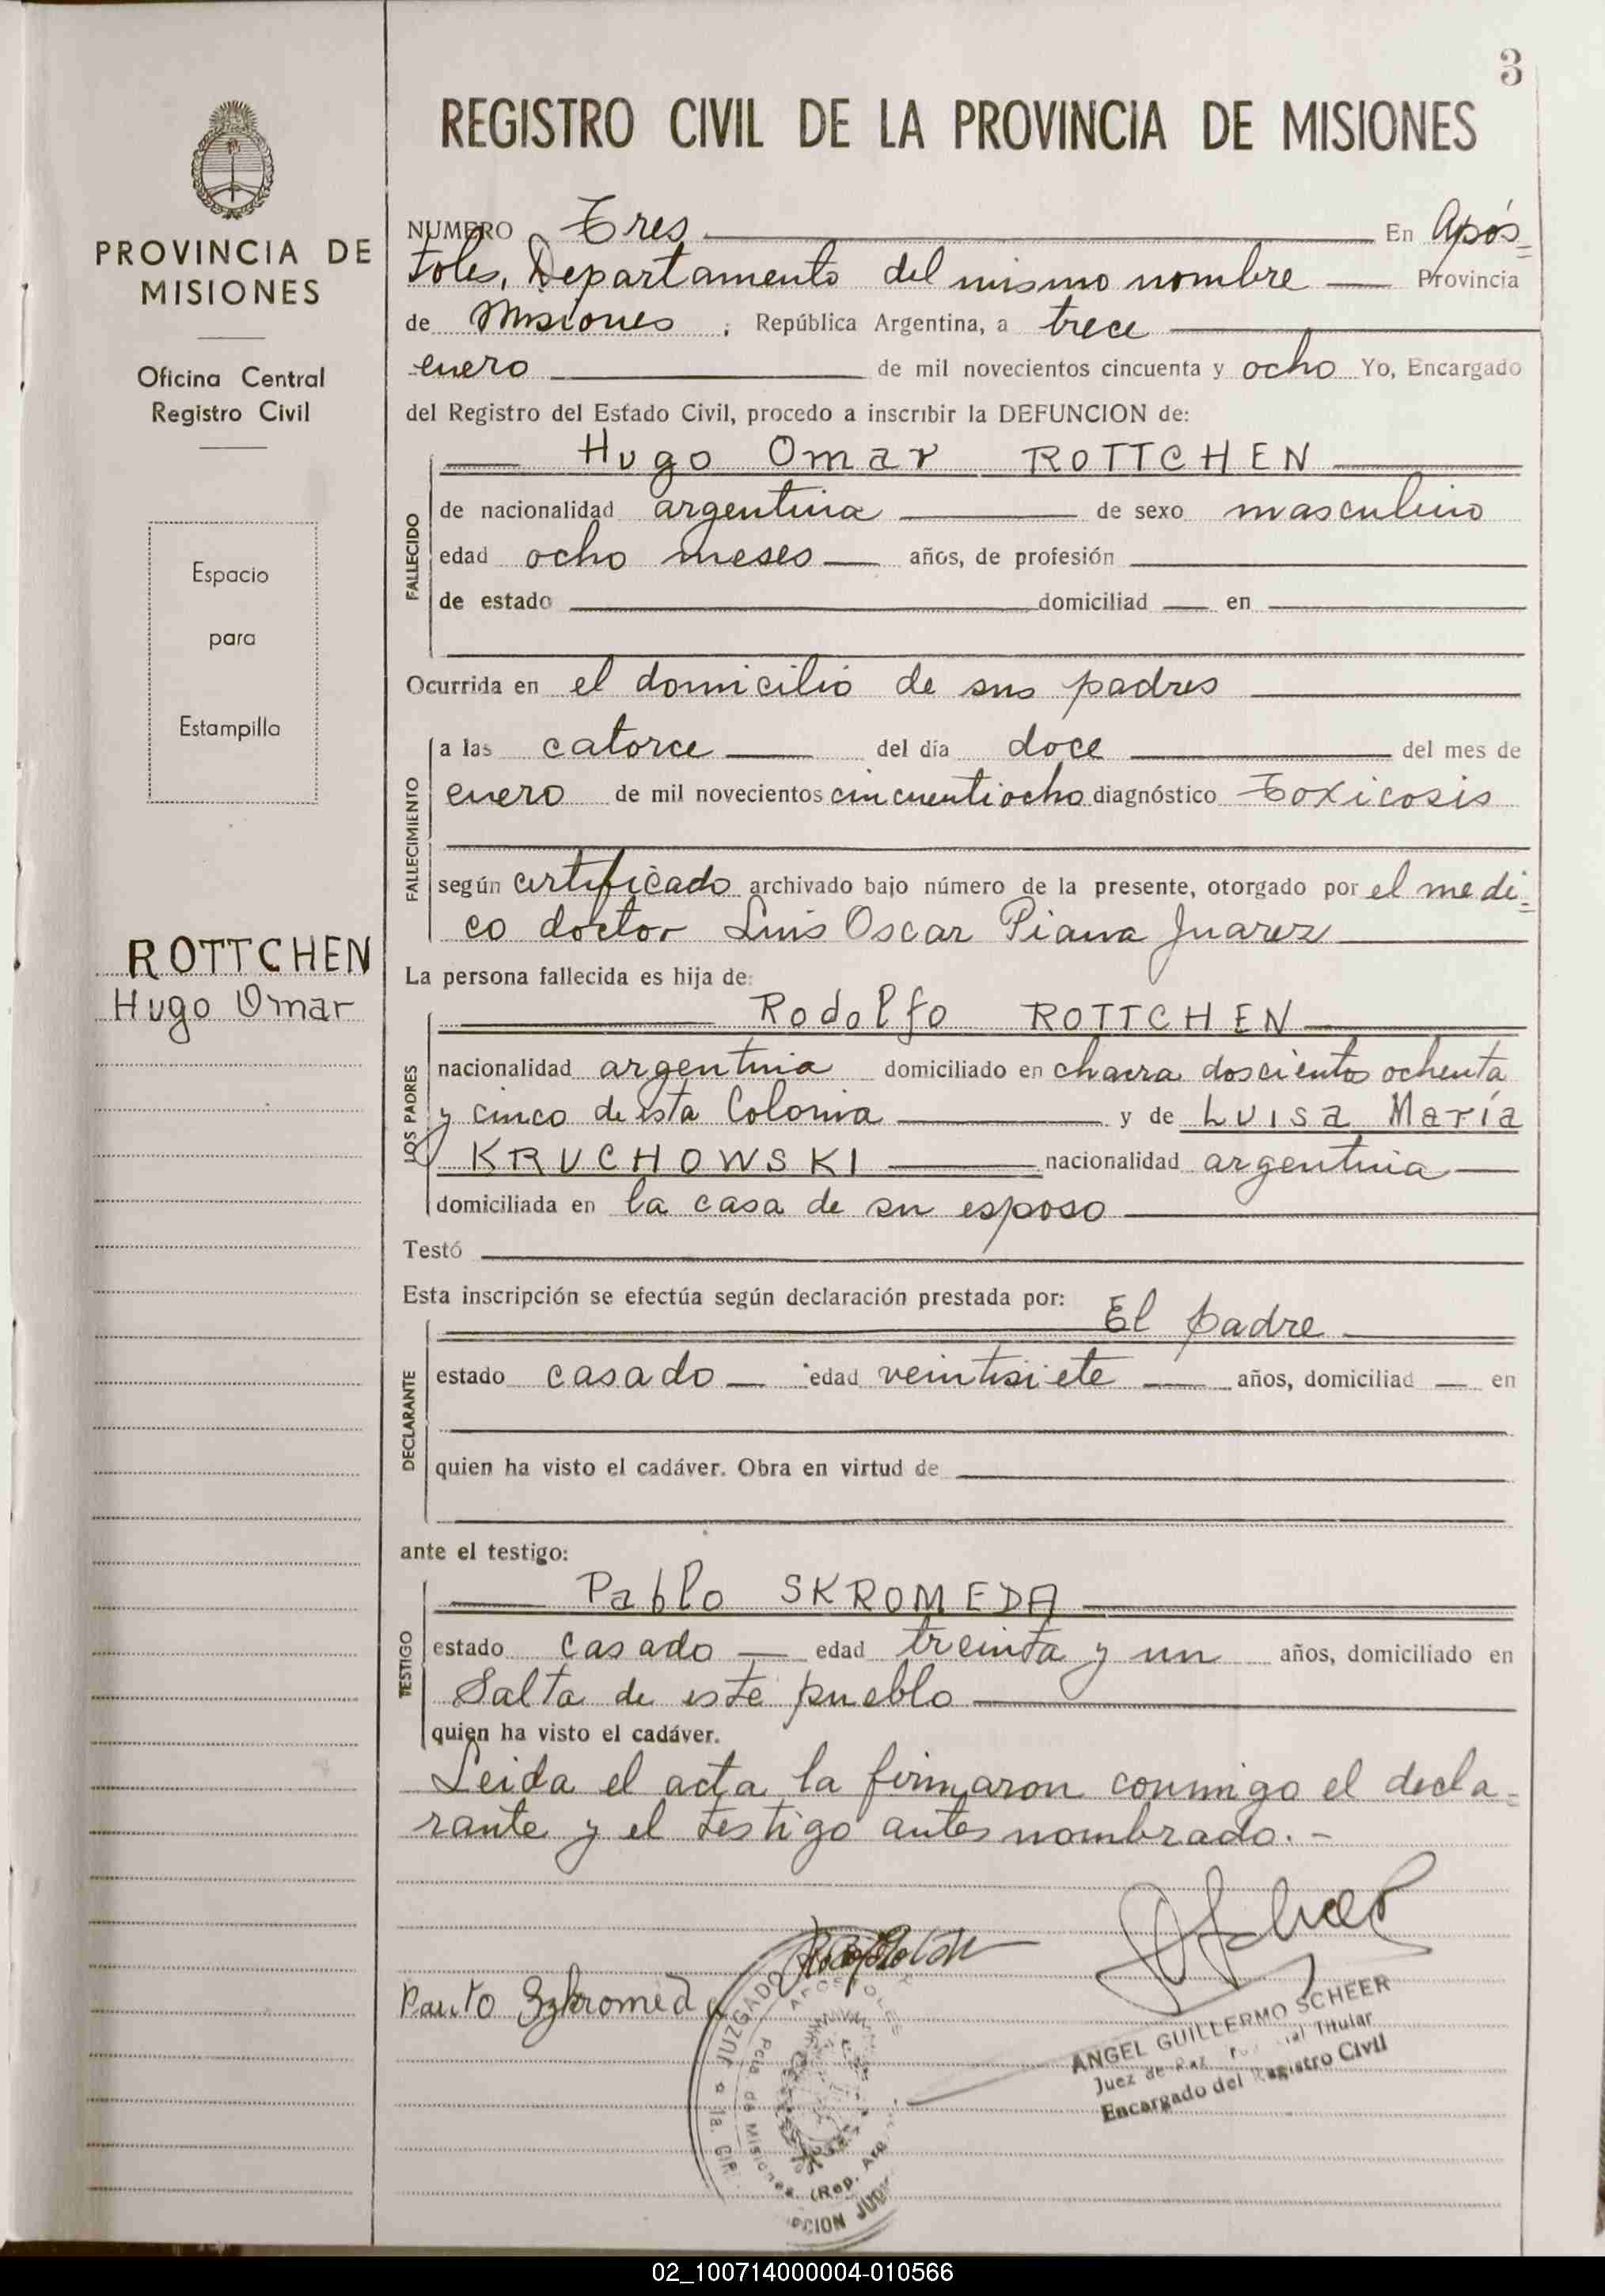 3
REGISTRO CIVIL DE LA PROVINCIA DE MISIONES
PROVINCIA DE
MISIONES
Oficina Central
Registro Civil
Espacio
para
Estampilla
ROTTCHEN
Hugo Omar
NUMERO Tres En Após=
toles, Departamento del mismo nombre Provincia
de Misiones, República Argentina, a trece
enero de mil novecientos cincuenta y ocho Yo, Encargado
del Registro del Estado Civil, procedo a inscribir la DEFUNCION de:
Hugo Omar ROTTCHEN
FALLECIDO
de nacionalidad argentina de sexo masculino
edad ocho meses años, de profesión
de estado domiciliad en
Ocurrida en el domicilio de sus padres
FALLECIMIENTO
a las catorce del día doce del mes de
enero de mil novecientos cincuentiocho diagnóstico Toxicosis
según certificado archivado bajo número de la presente, otorgado por el medi=
co doctor Luis Oscar Piana Juarez
La persona fallecida es hija de:
LOS PADRES
Rodolfo ROTTCHEN
nacionalidad argentina domiciliado en chacra doscientos ochenta
y cinco de esta Colonia y de Luisa María
KRUCHOWSKI nacionalidad argentina
domiciliada en la casa de su esposo
Testó
Esta inscripción se efectúa según declaración prestada por:
El padre
DECLARANTE
estado casado edad veintisiete años, domiciliad en
quien ha visto el cadáver. Obra en virtud de
ante el testigo:
Pablo SKROMEDA
TESTIGO
estado casado edad treinta y un años, domiciliado en
Salta de este pueblo
quien ha visto el cadáver.
Leida el acta la firmaron conmigo el decla=
rante y el testigo antes nombrado.-
ANGEL GUILLERMO SCHEER
Juez de Paz Titular
Encargado del Registro Civil
JUZGADO
APOSTOLES
Pcia. de Misiones (Rep. Arg.
1a. CIR
PCION JUD
02_100714000004-010566